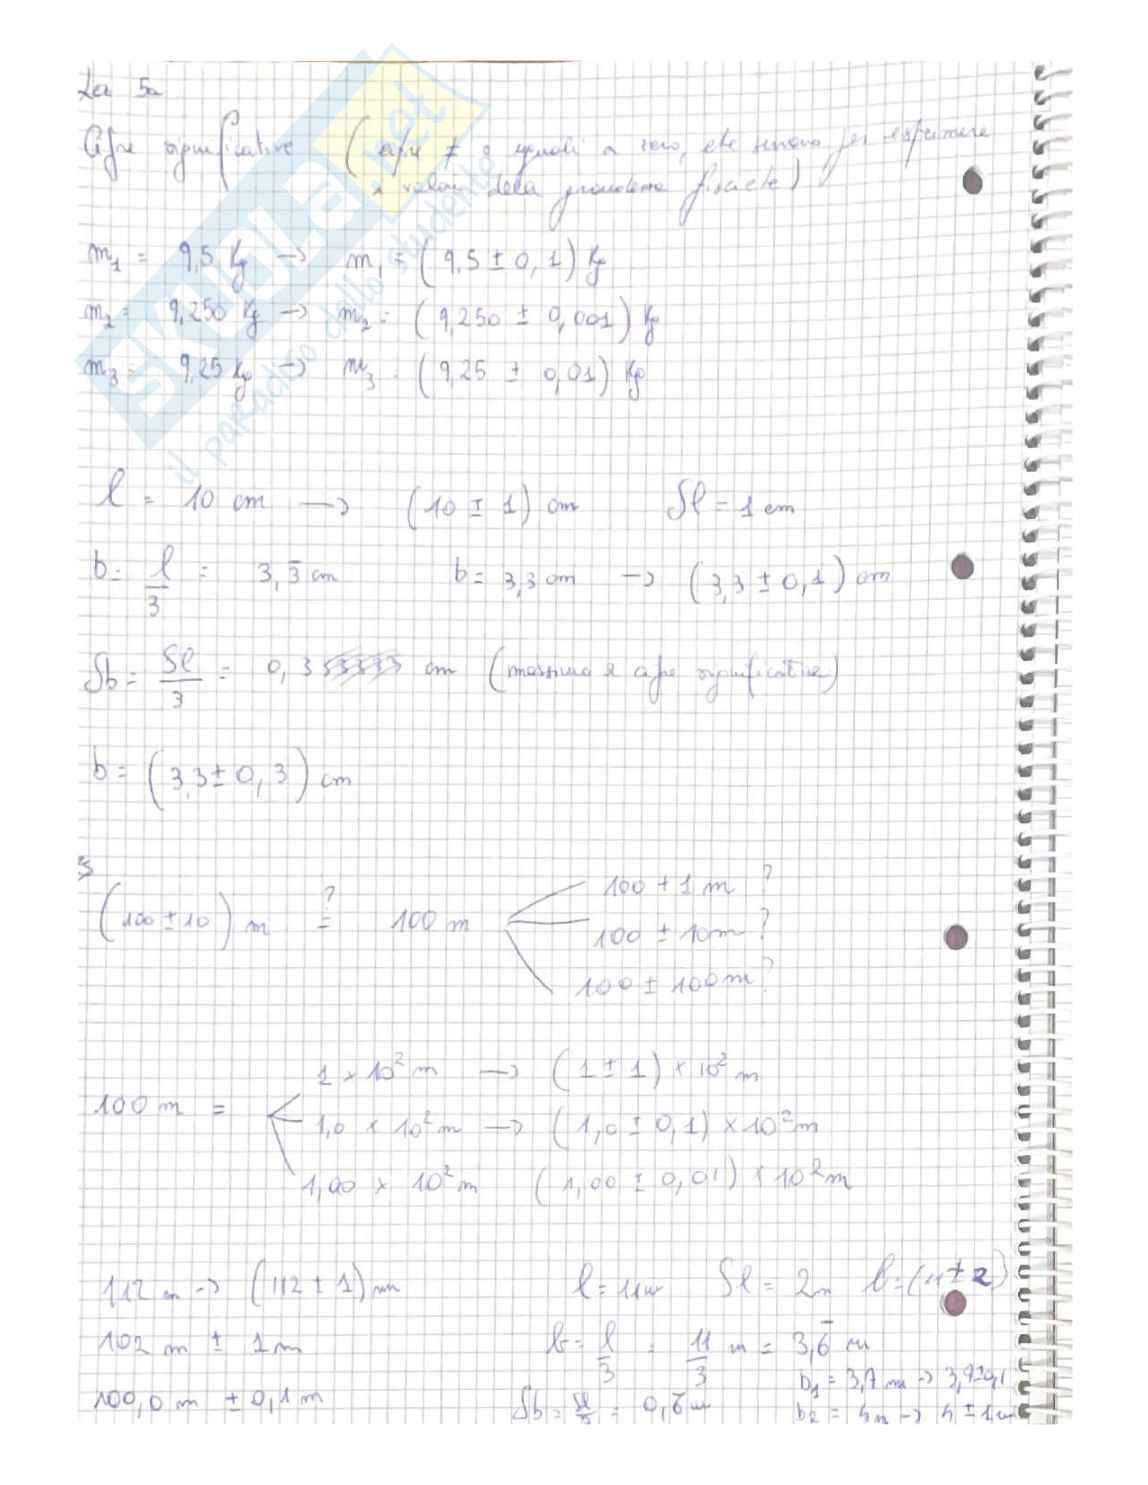 Cifre significative (cifre ≠ o uguali a zero, che servono per esprimere
i valori della grandezza fisica)
m₁ = 9,5 Kg → m₁ = (9,5 ± 0,1) Kg
m₂ = 9,250 Kg → m₂ = (9,250 ± 0,001) Kg
m₃ = 9,25 Kg → m₃ = (9,25 ± 0,01) Kg
l = 10 cm → (10 ± 1) cm δl = 1 cm
b = l/3 = 3,3̅ cm b = 3,3 cm → (3,3 ± 0,1) cm
δb = δl/3 = 0,3 cm (massimo 2 cifre significative)
b = (3,3 ± 0,3) cm
(100 ± 10) m =? 100 m
100 ± 1 m ?
100 ± 10 m ?
100 ± 100 m ?
100 m =
1 × 10² m → (1 ± 1) × 10² m
1,0 × 10² m → (1,0 ± 0,1) × 10² m
1,00 × 10² m (1,00 ± 0,01) × 10² m
112 m → (112 ± 1) m
102 m ± 1 m
100,0 m ± 0,1 m
l = 11 m δl = 2 m l = (11 ± 2)
b = l/3 = 11/3 m = 3,6̅ m
b₁ = 3,7 m → 3,7 ± 0,1
δb = δl/3 = 0,6̅ m
b₂ = 4 m → 4 ± 1 m
SKUOLA.net
il paradiso dello studente